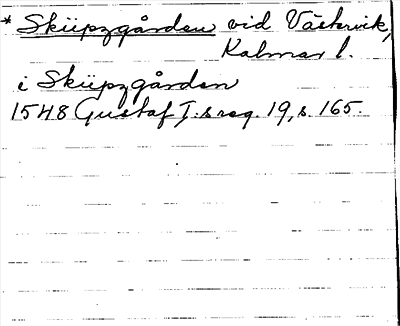 * Skiipzgården vid Västervik,
Kalmar l.
i Skiipzgården
1548 Gustaf I:s reg. 19, s. 165.